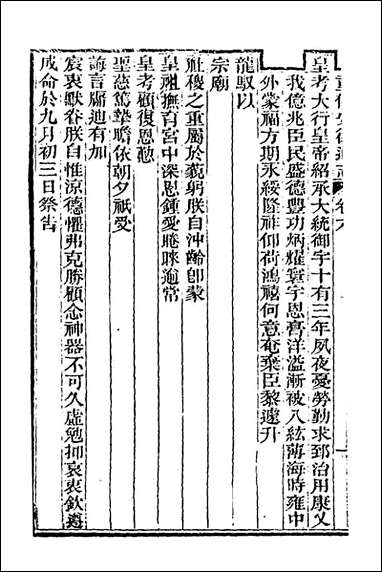 皇考大行皇帝紹承大統御宇十有三年夙夜憂勞勤求郅治用康乂
我億兆臣民盛德豐功炳耀寰宇恩膏洋溢漸被八紘薄海時雍中
外蒙福方期永綏隆祥仰荷鴻禧何意奄棄臣黎遽升
龍馭以
宗廟
社稷之重屬於藐躬朕自沖齡卽蒙
皇祖撫育宮中深恩鍾愛睠睞逾常
皇考顧復恩懃
聖慈篤摯瞻依朝夕祇受
誨言牖迪有加
宸衷默眷朕自惟涼德懼弗克勝顧念神器不可久虛勉抑哀衷欽遵
成命於九月初三日祭告